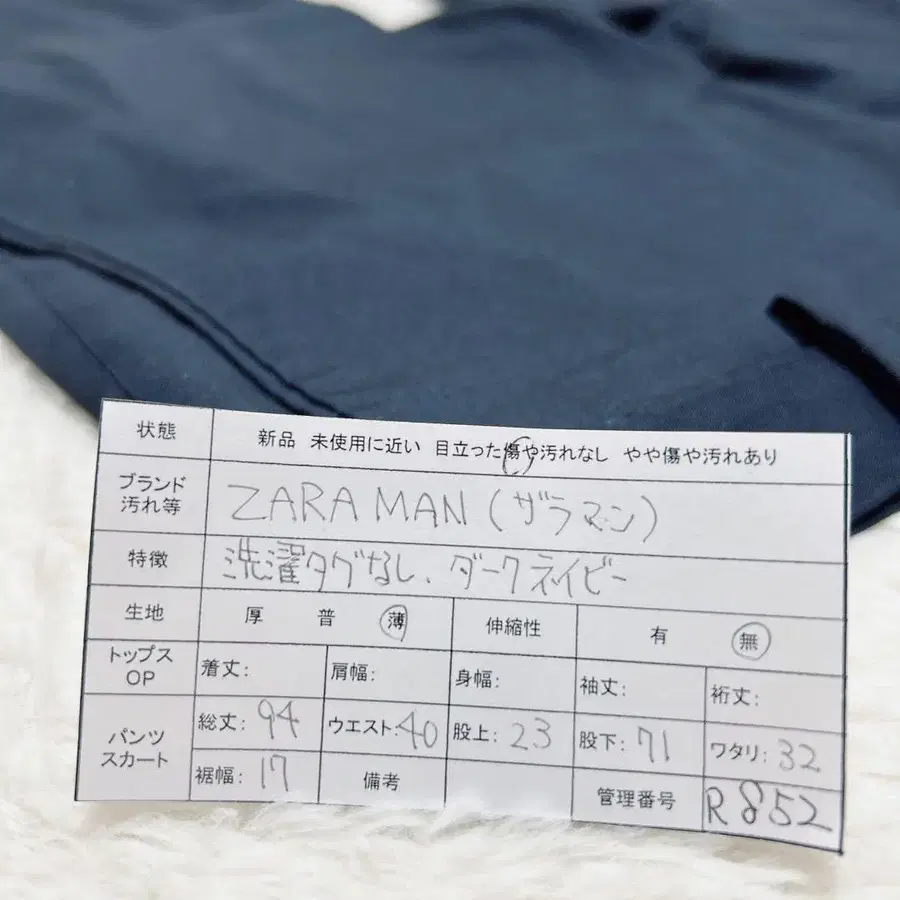 状態 新品 未使用に近い 目立った傷や汚れなし やや傷や汚れあり
ブランド
汚れ等 ZARA MAN(ザラマン)
特徴 洗濯タグなし、ダークネイビー
生地 厚 普 薄 伸縮性 有 無
トップス
OP 着丈: 肩幅: 身幅: 袖丈: 裄丈:
パンツ
スカート 総丈:94 ウエスト:40 股上:23 股下:71 ワタリ:32
裾幅:17 備考 管理番号 R852